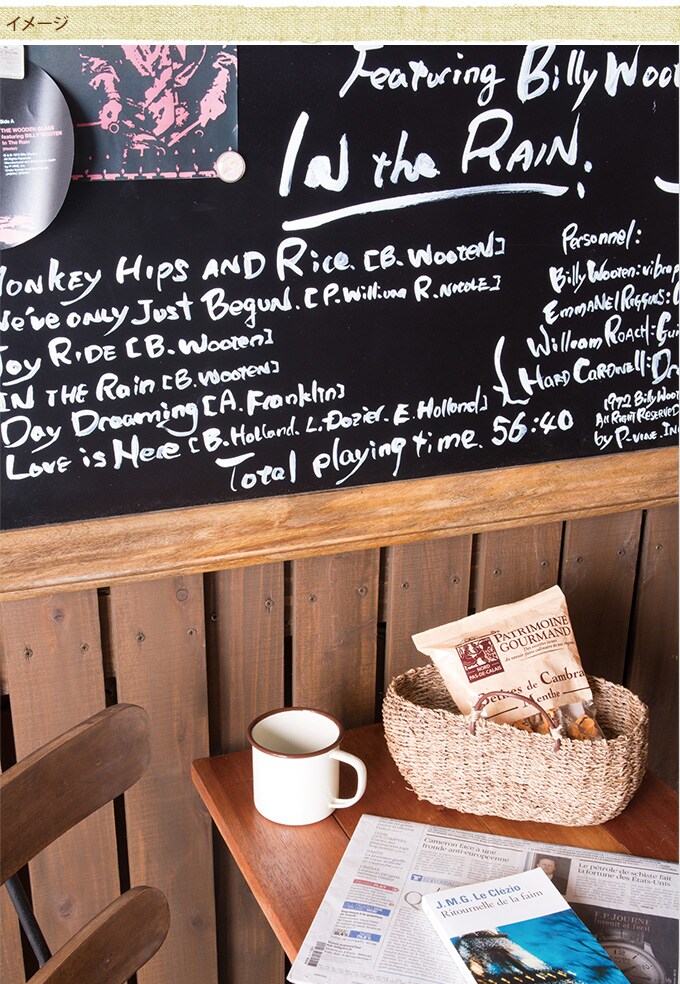 イメージ
Featuring Billy Woo
IN the RAIN.
Side A
THE WOODEN GLASS
featuring BILLY WOOTEN
In The Rain
onkey Hips AND Rice. [B. WOOTEN]
We've only Just Begun. [P. William R. NICOLE]
Joy RIDE [B. Wooten]
IN THE Rain [B. WOOTEN]
Day Dreaming [A. Franklin]
Love is Here [B. Holland. L. Dozier. E. Holland]
Total playing time. 56:40
Personnel:
Billy Wooten: vibrap
EMMANEL RIGGINS:
William ROACH: Gui
HARD CARDWELL: Dr
1972 Billy Woo
All Right Reserved
by P-VINE. IN
PATRIMOINE
GOURMAND
NORD
PAS-DE-CALAIS
Bêtises de Cambra
Menthe
Cameron face à une
fronde anti-européenne
Le pétrole de schiste fait
la fortune des États-Unis
F.P. JOURNE
Invenit et Fecit
J.M.G. Le Clézio
Ritournelle de la faim